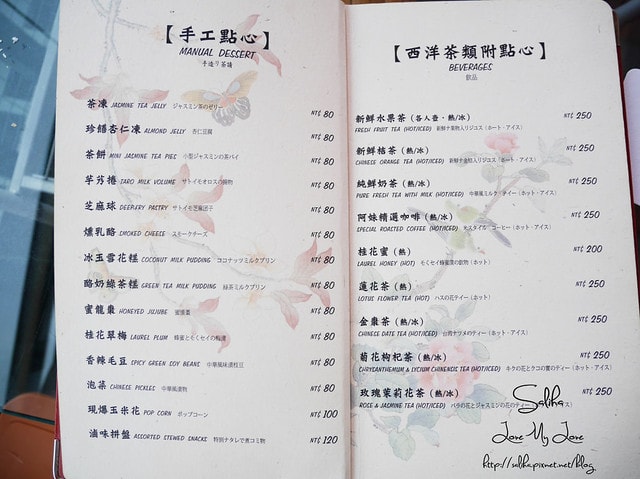 【手工點心】
MANUAL DESSERT
手造り茶請
茶凍 JASMINE TEA JELLY ジャスミン茶のゼリー NT$ 80
珍饍杏仁凍 ALMOND JELLY 杏仁豆腐 NT$ 80
茶餅 MINI JASMINE TEA PIES 小型ジャスミンの茶パイ NT$ 80
芋艿捲 TARO MILK VOLUME サトイモオロスの腕物 NT$ 80
芝麻球 DEEPFRY PASTRY サトイモ芝麻団子 NT$ 80
燻乳酪 SMOKED CHEESE スモークチーズ NT$ 80
冰玉雪花糕 COCONUT MILK PUDDING ココナッツミルクプリン NT$ 80
酪奶綠茶糕 GREEN TEA MILK PUDDING 緑茶ミルクプリン NT$ 80
蜜龍棗 HONEYED JUJUBE NT$ 80
桂花翠梅 LAUREL PLUM 蜂蜜ともくセイの梅漬 NT$ 80
香辣毛豆 SPICY GREEN SOY BEANS 中華風味漬枝豆 NT$ 80
泡菜 CHINESE PICKLES 中華風漬物 NT$ 80
現爆玉米花 POP CORN ポップコーン NT$ 100
滷味拼盤 ASSORTED STEWED SNACKS 特別ナタレで煮コミ物 NT$ 120
【西洋茶類附點心】
BEVERAGES
飲品
新鮮水果茶（各人壺・熱/冰） NT$ 250
FRESH FRUIT TEA (HOT/ICED) 新鮮ナ果物入リジコス（ホート・アイス）
新鮮桔茶（熱/冰） NT$ 250
CHINESE ORANGE TEA (HOT/ICED) 新鮮ナ金桔入リジコス（ホート・アイス）
純鮮奶茶（熱/冰） NT$ 250
PURE FRESH TEA WITH MILK (HOT/ICED) 中華風ミルクティー（ホット・アイス）
阿妹精選咖啡（熱/冰） NT$ 250
SPECIAL ROASTED COFFEE (HOT/ICED) スタイル コーヒー（ホート・アイス）
桂花蜜（熱） NT$ 200
LAUREL HONEY (HOT) モくセイ蜂蜜漿の飲物（ホット）
蓮花茶（熱） NT$ 250
LOTUS FLOWER TEA (HOT) ハスの花テイー（ホット）
金棗茶（熱/冰） NT$ 250
CHINESE DATE TEA (HOT/ICED) 台湾ナツメのティー（ホット・アイス）
菊花枸杞茶（熱/冰） NT$ 250
CHRYSANTHEMUM & LYCIUM CHINENCIS TEA (HOT/ICED) キクの花とクコの實のティー（ホット・アイス）
玫瑰茉莉花茶（熱/冰） NT$ 250
ROSE & JASMINE TEA (HOT/ICED) バラの花とジャスミンの花のティー
Saliha
Love My Love
http://saliha.pixnet.net/blog